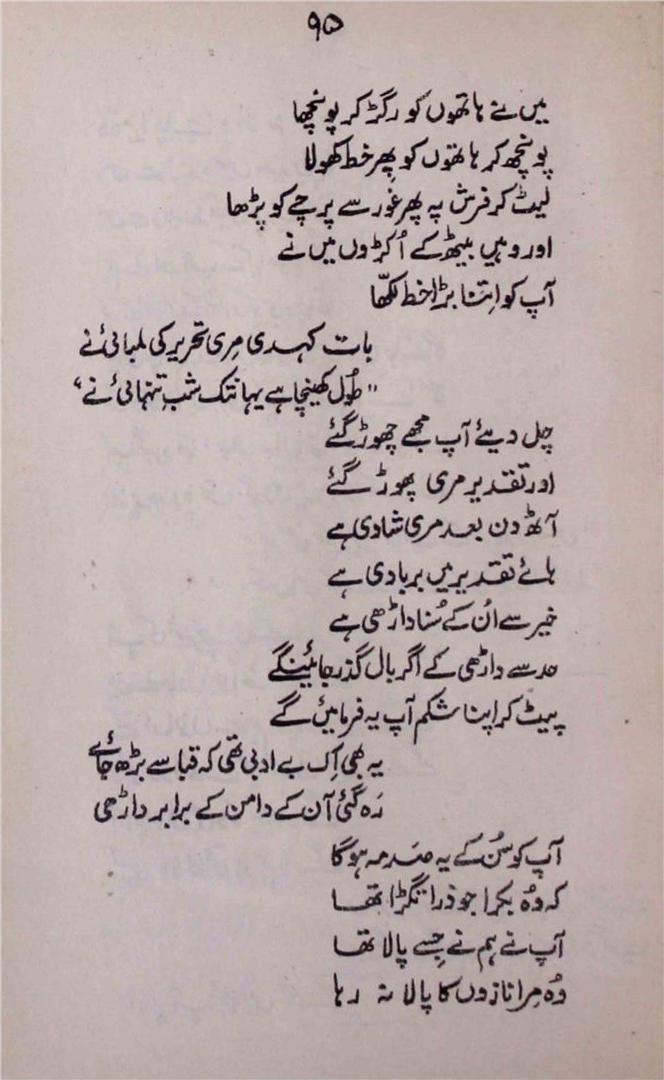 ۹۵
میں نے ہاتھوں کو رگڑ کر پونچھا
پونچھ کر ہاتھوں کو پھر خط کھولا
لیٹ کر فرش پہ پھر غور سے پرچے کو پڑھا
اور وہیں بیٹھ کے اُکڑوں میں نے
آپ کو اِتنا بڑا خط لکھّا
بات کہدی مِری تحریر کی لمبائی نے
"طُول کھینچا ہے یہانتک شبِ تنہائی نے"
چل دیئے آپ مجھے چھوڑ گئے
اور تقدیر مری پھوڑ گئے
آٹھ دن بعد مری شادی ہے
ہائے تقدیر میں بربادی ہے
خیر سے اُن کے سُنا داڑھی ہے
حد سے داڑھی کے اگر بال گذر جائینگے
پیٹ کر اپنا شکم آپ یہ فرمائیں گے
یہ بھی اِک بے ادبی تھی کہ قبا سے بڑھ جائے
رَہ گئی آن کے دامن کے برابر داڑھی
آپ کو سُن کے یہ صَدمہ ہو گا
کہ وُہ بکرا جو ذرا لنگڑا تھا
آپ نے ہم نے جِسے پالا تھا
وُہ مِرا نازوں کا پالا نہ رہا